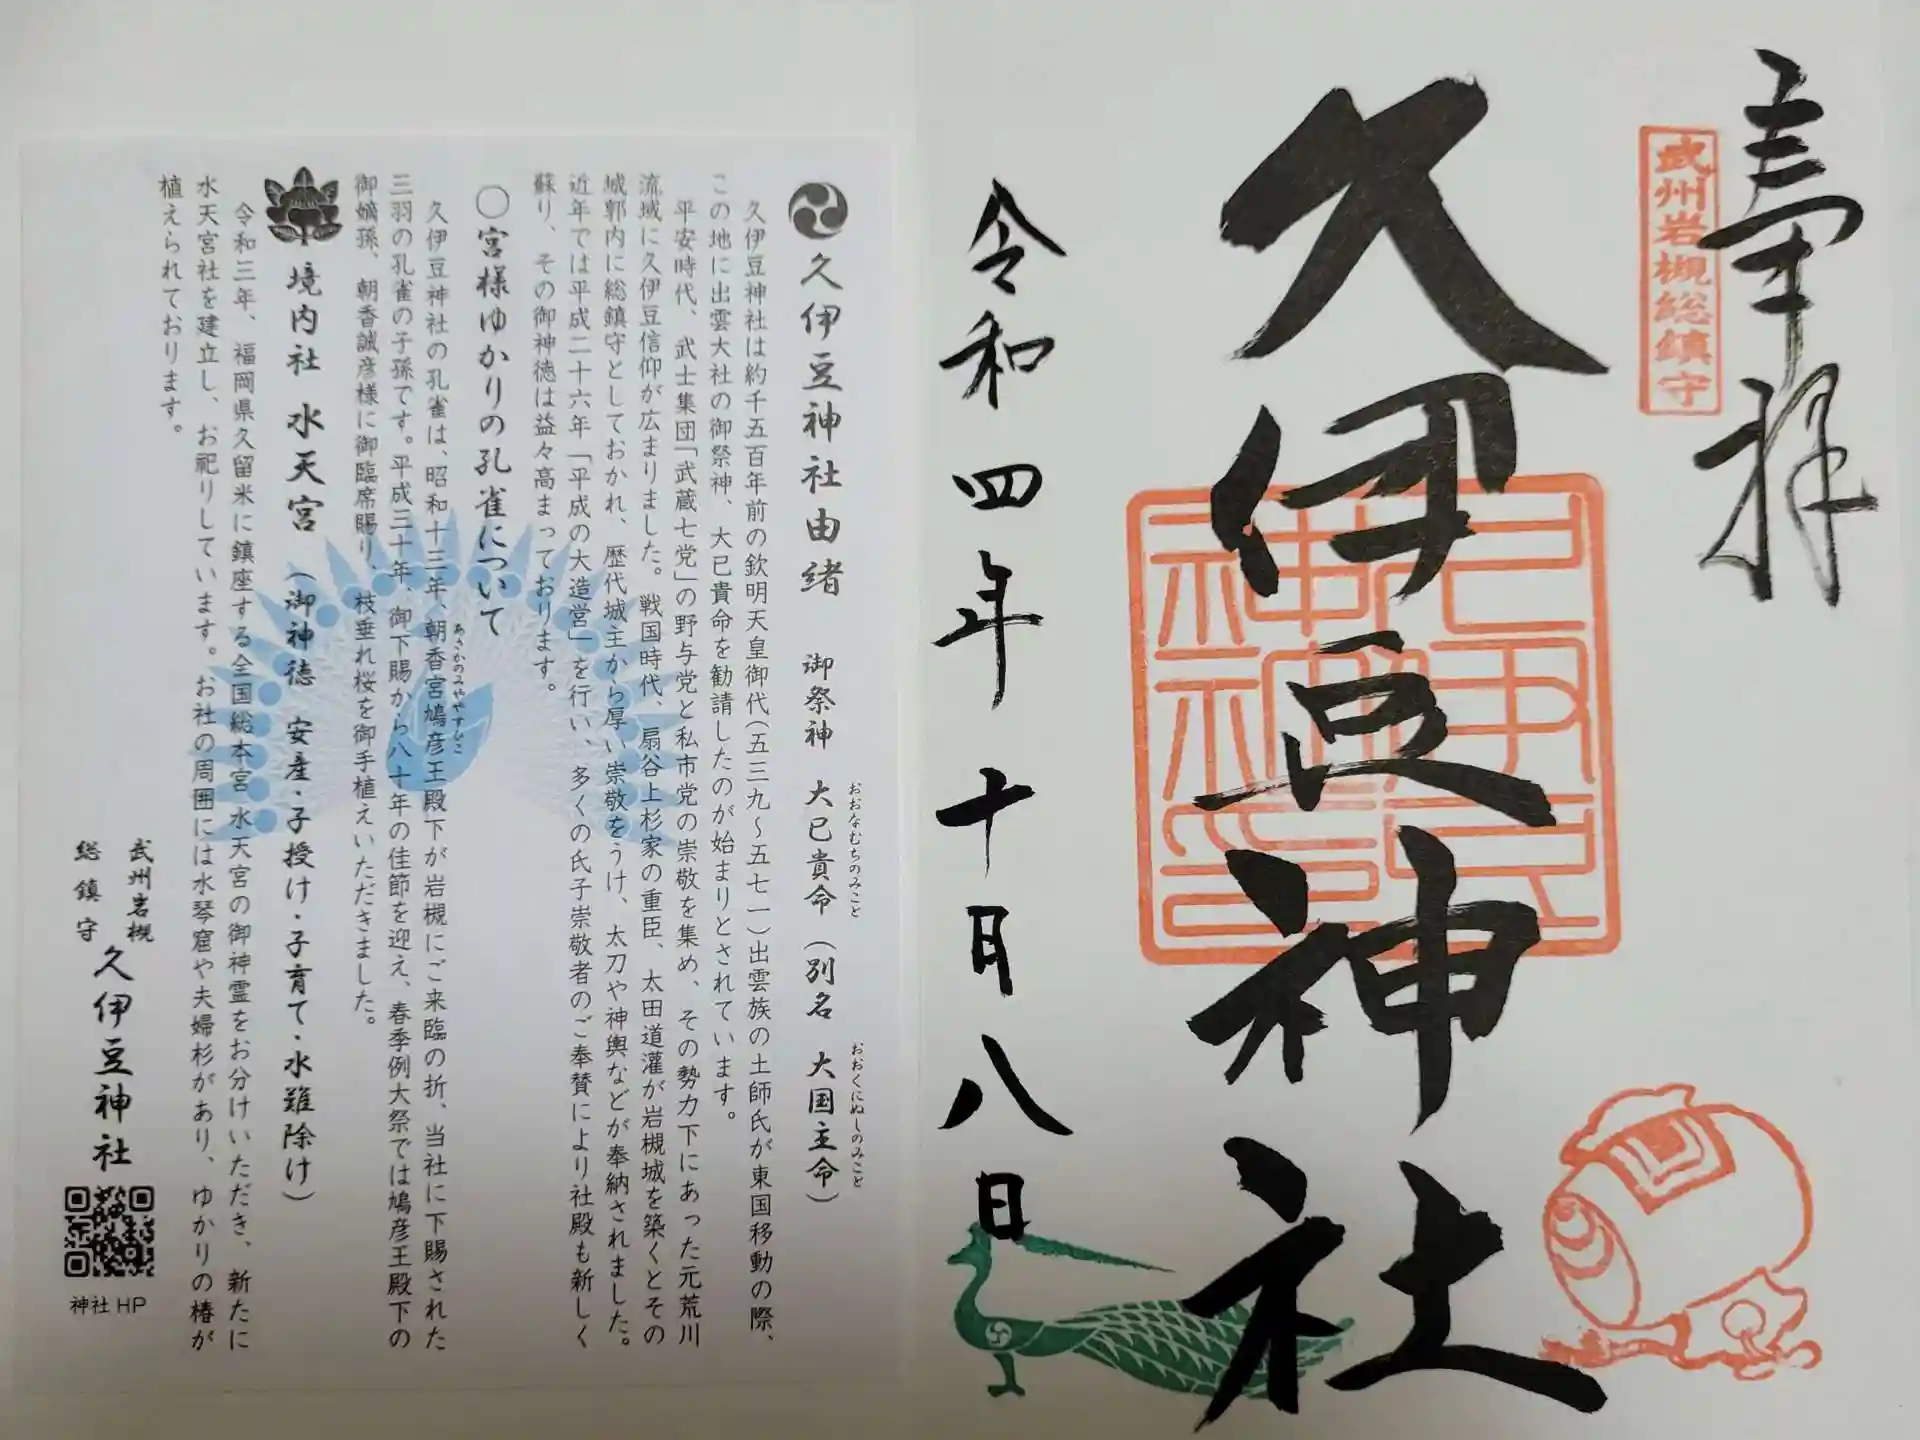 奉拝
武州岩槻総鎮守
久伊豆神社
令和四年十月八日
久伊豆神社由緒 御祭神 大已貴命(別名 大国主命)
おおなむちのみこと
おおくにぬしのみこと
久伊豆神社は約千五百年前の欽明天皇御代(五三九～五七一)出雲族の土師氏が東国移動の際、
この地に出雲大社の御祭神、大已貴命を勧請したのが始まりとされています。
平安時代、武士集団「武蔵七党」の野与党と私市党の崇敬を集め、その勢力下にあった元荒川
流域に久伊豆信仰が広まりました。戦国時代、扇谷上杉家の重臣、太田道灌が岩槻城を築くとその
城郭内に総鎮守としておかれ、歴代城主から厚い崇敬をうけ、太刀や神輿などが奉納されました。
近年では平成二十六年「平成の大造営」を行い、多くの氏子崇敬者のご奉賛により社殿も新しく
蘇り、その御神徳は益々高まっております。
〇宮様ゆかりの孔雀について
久伊豆神社の孔雀は、昭和十三年、朝香宮鳩彦王殿下が岩槻にご来臨の折、当社に下賜された
あさかのみややすひこ
三羽の孔雀の子孫です。平成三十年、御下賜から八十年の佳節を迎え、春季例大祭では鳩彦王殿下の
御嫡孫、朝香誠彦様に御臨席賜り、枝垂れ桜を御手植えいただきました。
境内社 水天宮 (御神徳 安産・子授け・子育て・水難除け)
令和三年、福岡県久留米に鎮座する全国総本宮 水天宮の御神霊をお分けいただき、新たに
水天宮社を建立し、お祀りしています。お社の周囲には水琴窟や夫婦杉があり、ゆかりの椿が
植えられております。
武州岩槻
総鎮守
久伊豆神社
神社 HP